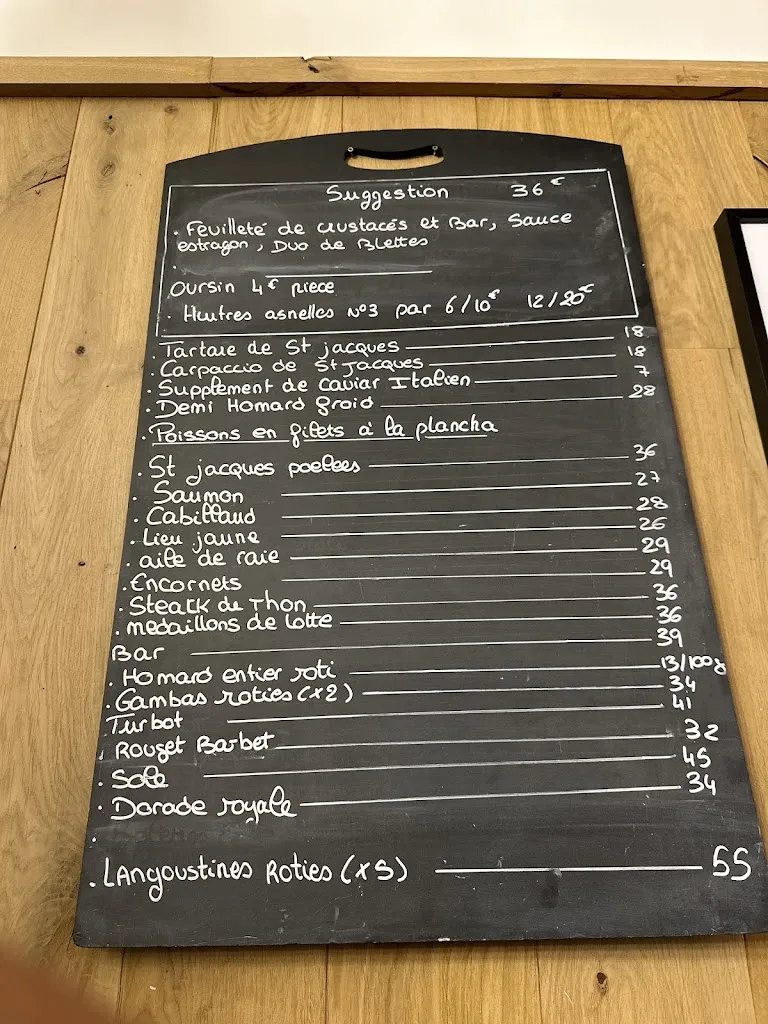 Suggestion 36€
. Feuilleté de crustacés et Bar, Sauce
estragon, Duo de Blettes
.
Oursin 4€ piece
. Huitres asnelles N°3 par 6/10€ 12/20€
. Tartare de St jacques 18
. Carpaccio de St Jacques 18
. Supplement de caviar Italien 7
. Demi Homard froid 28
. Poissons en filets à la plancha
. St jacques poelees 36
. Saumon 27
. Cabillaud 28
. Lieu jaune 26
. aile de raie 29
. Encornets 29
. Steack de Thon 36
. medaillons de lotte 36
Bar 39
. Homard entier roti 13/100g
. Gambas roties (x2) 34
Turbot 41
. Rouget Barbet 32
. Sole 45
. Dorade royale 34
.
. Langoustines Roties (x5) 55